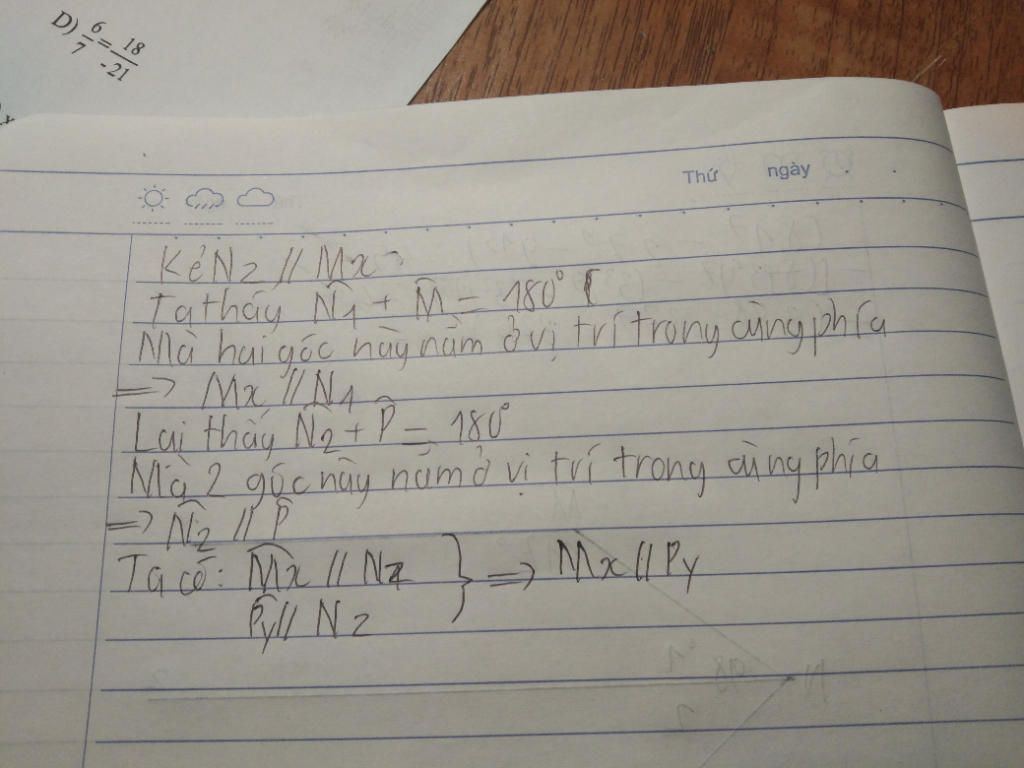 D) 6/7 = 18/-21
Thứ ngày
Kẻ Nz // Mx
Ta thấy N̂1 + M̂ = 180°
Mà hai góc này nằm ở vị trí trong cùng phía
=> Mx // N1
Lại thấy N̂2 + P̂ = 180°
Mà 2 góc này nằm ở vị trí trong cùng phía
=> N̂2 // P̂
Ta có: Mx // Nz } => Mx // Py
Py // Nz